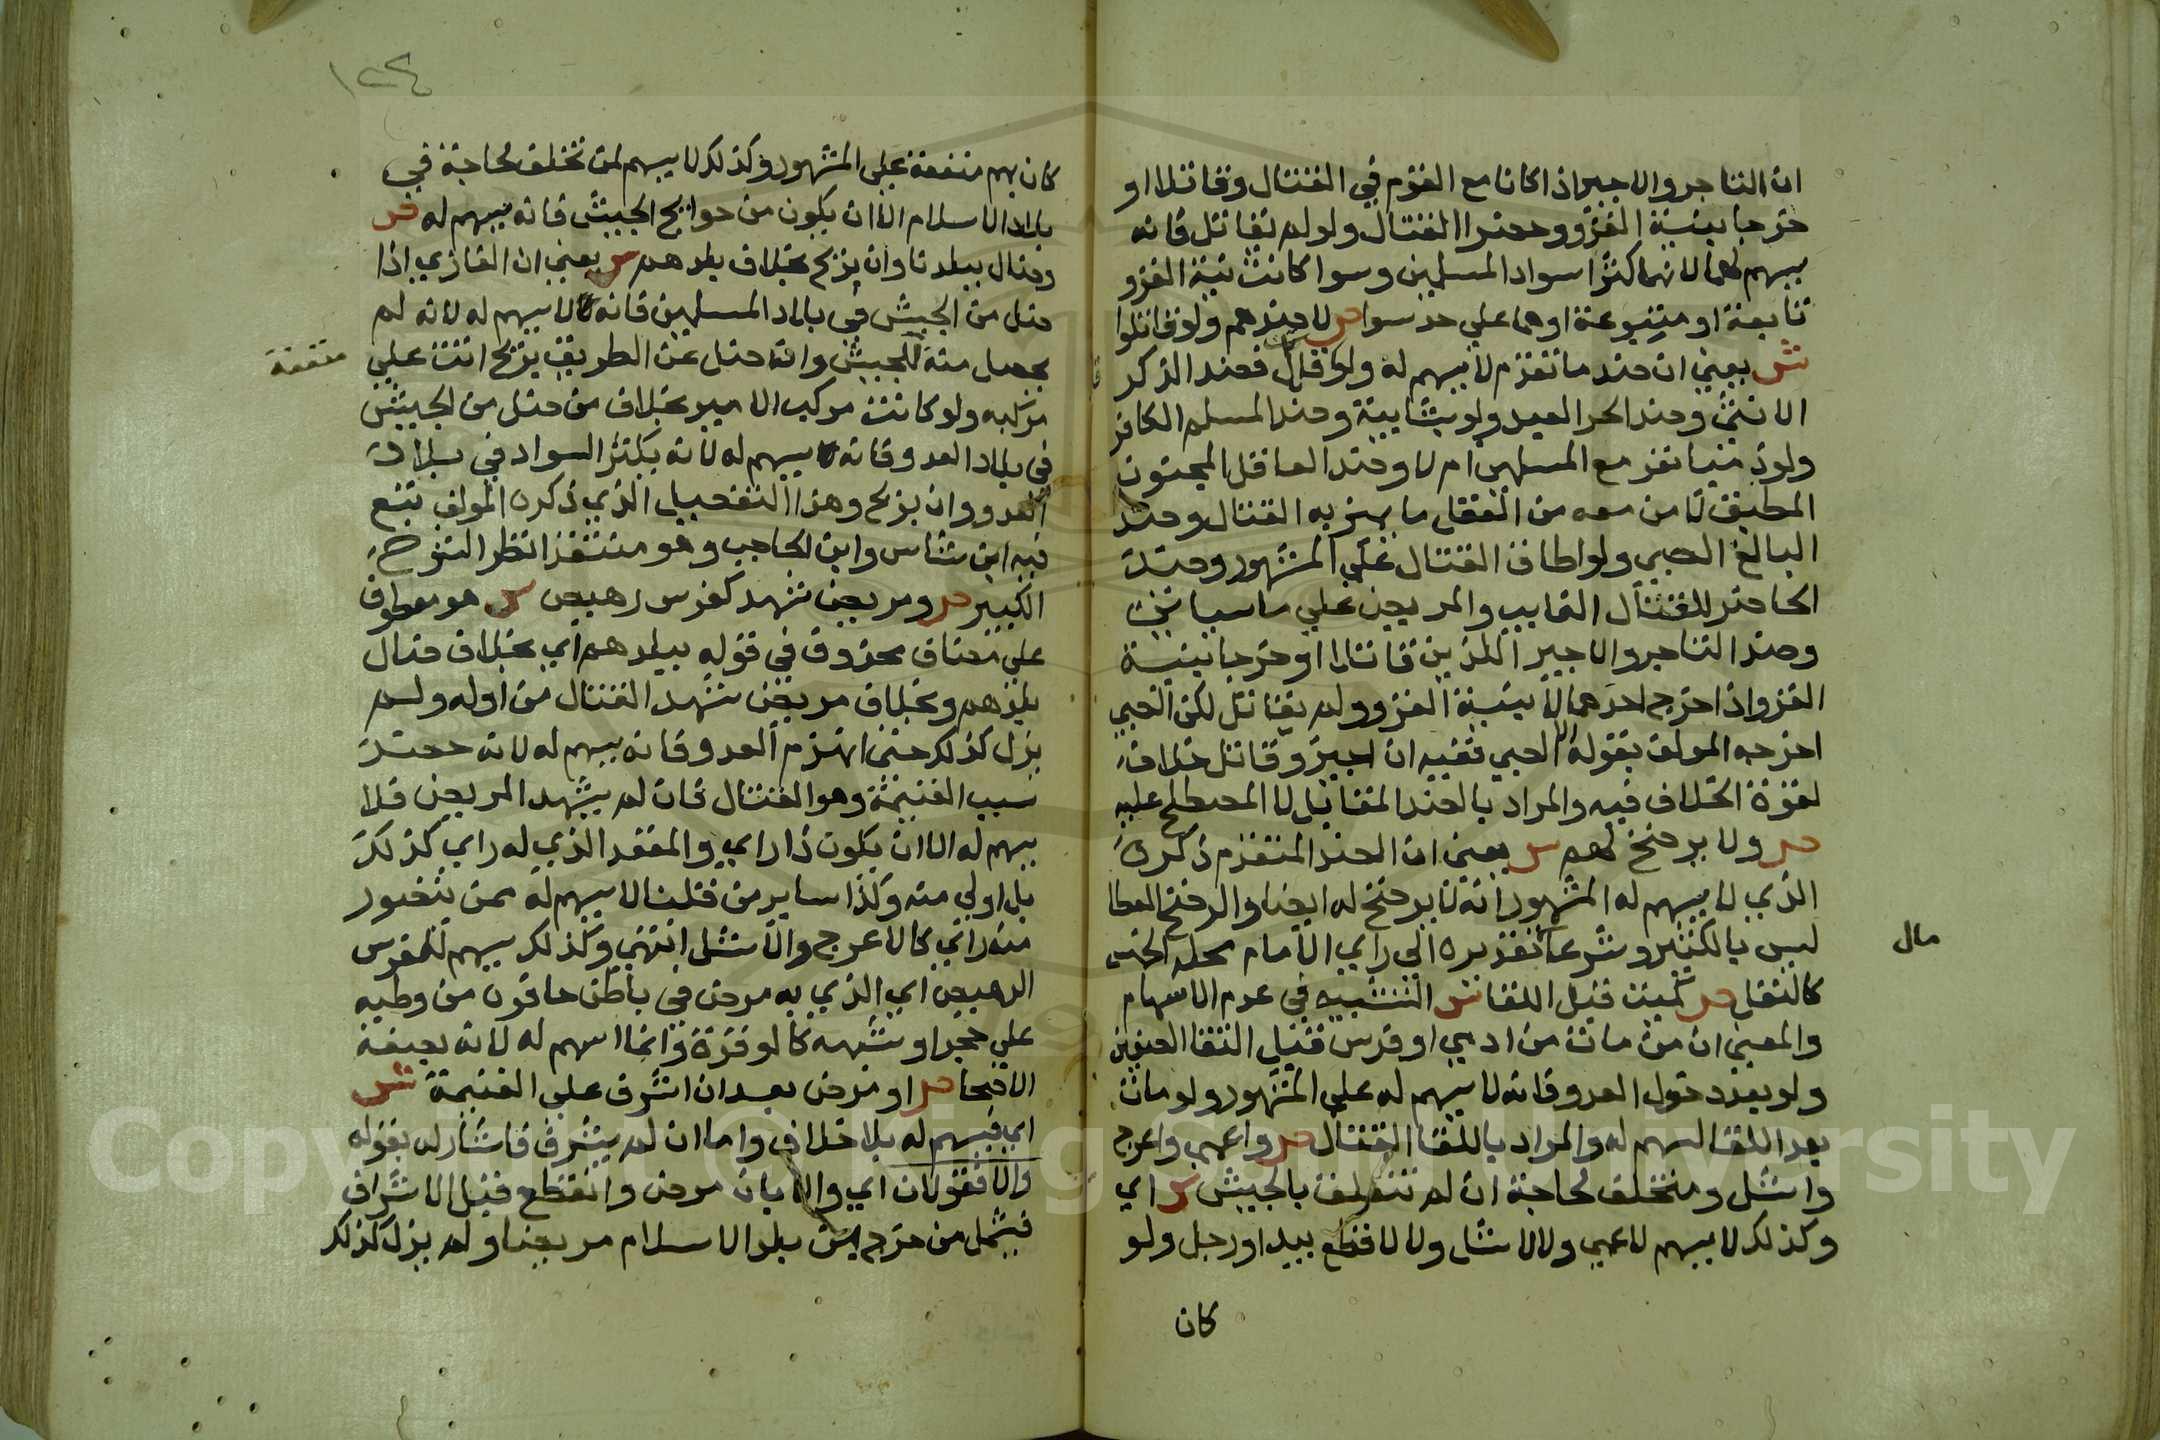 ان التاجر والاجير اذا كانا مع القوم في القتال وقاتلا او
خرجا بنية الغزو وحضرا القتال ولو لم يقاتل فانه
يسهم لهما لانهما كثرا سواد المسلمين وسوا كانت نية الغزو
تابعة او متبوعة او هما علي حد سوا ص لا ضدهم ولو قاتلوا
ش يعني ان ضد ما تقدم لا يسهم له ولو قاتل فضد الذكر
الانثي وضد الحر العبد ولو بشايبة وضد المسلم الكافر
ولو ذميا نفر مع المسلمين ام لا وضد العاقل المجنون
المطبق لا من معه من العقل ما يميز به القتال وضد
البالغ الصبي ولو اطاق القتال علي المشهور وضد
الحاضر للقتال الغايب والمريض علي ما سياتي
وضد التاجر والاجير اللذين قاتلا او خرجا بنية
الغزو اذا خرج احدهما لا بنية الغزو ولم يقاتل لكن الصبي
اخرجه المولف بقوله الا الصبي ففيه ان اجيز وقاتل خلاف
لقوة الخلاف فيه والمراد بالضد المقابل لا المصطلح عليه
ص ولا يرضخ لهم ش يعني ان الضد المتقدم ذكره
الذي لا يسهم له المشهور انه لا يرضخ له ايضا والرضخ لغة العطا
ليس بالكثير وشرعا مال تقديره الي راي الامام محله الخمس
كالنفل ص كميت قبل اللقا ش التشبيه في عدم الاسهام
والمعني ان من مات من ادمي او فرس قبل اللقا العدوين
ولو بعد دخول العدو فانه لا يسهم له علي المشهور ولو مات
بعد اللقا اسهم له والمراد باللقا القتال ص واعمي واعرج
واشل ومتخلف لحاجة ان لم تتعلق بالجيش ش اي
وكذلك لا يسهم لاعمي ولا لاشل ولا لاقطع بيد او رجل ولو
كان
مال
١٢٤
كان بهم منفعة علي المشهور وكذلك لا يسهم لمن تخلف لحاجة في
بلاد الاسلام الا ان يكون من حوايج الجيش فانه يسهم له ص
وضال ببلدنا وان بريح بخلاف بلدهم ش يعني ان الغازي اذا
ضل من الجيش في بلاد المسلمين فانه لا يسهم له لانه لم
يحصل منه للجيش وانه ضل عن الطريق بريح اتت علي
منفعة
مركبه ولو كانت مركب الامير بخلاف من ضل من الجيش
في بلاد العدو فانه يسهم له لانه يكثر السواد في بلاد
العدو وان بريح وهذا التفصيل الذي ذكره المولف تبع
فيه ابن شاس وابن الحاجب وهو منتقد انظر الشرح
الكبير ص ومريض شهد كفرس رهيص ش هو معطوف
علي مضاف محذوف في قوله ببلدهم اي بخلاف ضال
بلدهم وبخلاف مريض شهد القتال من اوله ولم
يزل كذلك حتي انهزم العدو فانه يسهم له لانه حضر
سبب الغنيمة وهو القتال فان لم يشهد المريض فلا
يسهم له الا ان يكون ذا راي والمقعد الذي له راي كذلك
بل اولي منه وكذا ساير من قلنا لا يسهم له ممن يتصور
منه راي كالاعرج والاشل انتهي وكذلك يسهم للفرس
الرهيص اي الذي به مرض في باطن حافره من وطيه
علي حجر او شبهه كالوقرة وانما اسهم له لانه بصفة
الاصحا ص او مرض بعد ان اشرف علي الغنيمة ش
اي فيسهم له بلا خلاف واما ان لم يشرف فاشار له بقوله
والا فقولان اي والا بان مرض وانقطع قبل الاشراف
فيشمل من خرج من بلد الاسلام مريضا ولم يزل كذلك